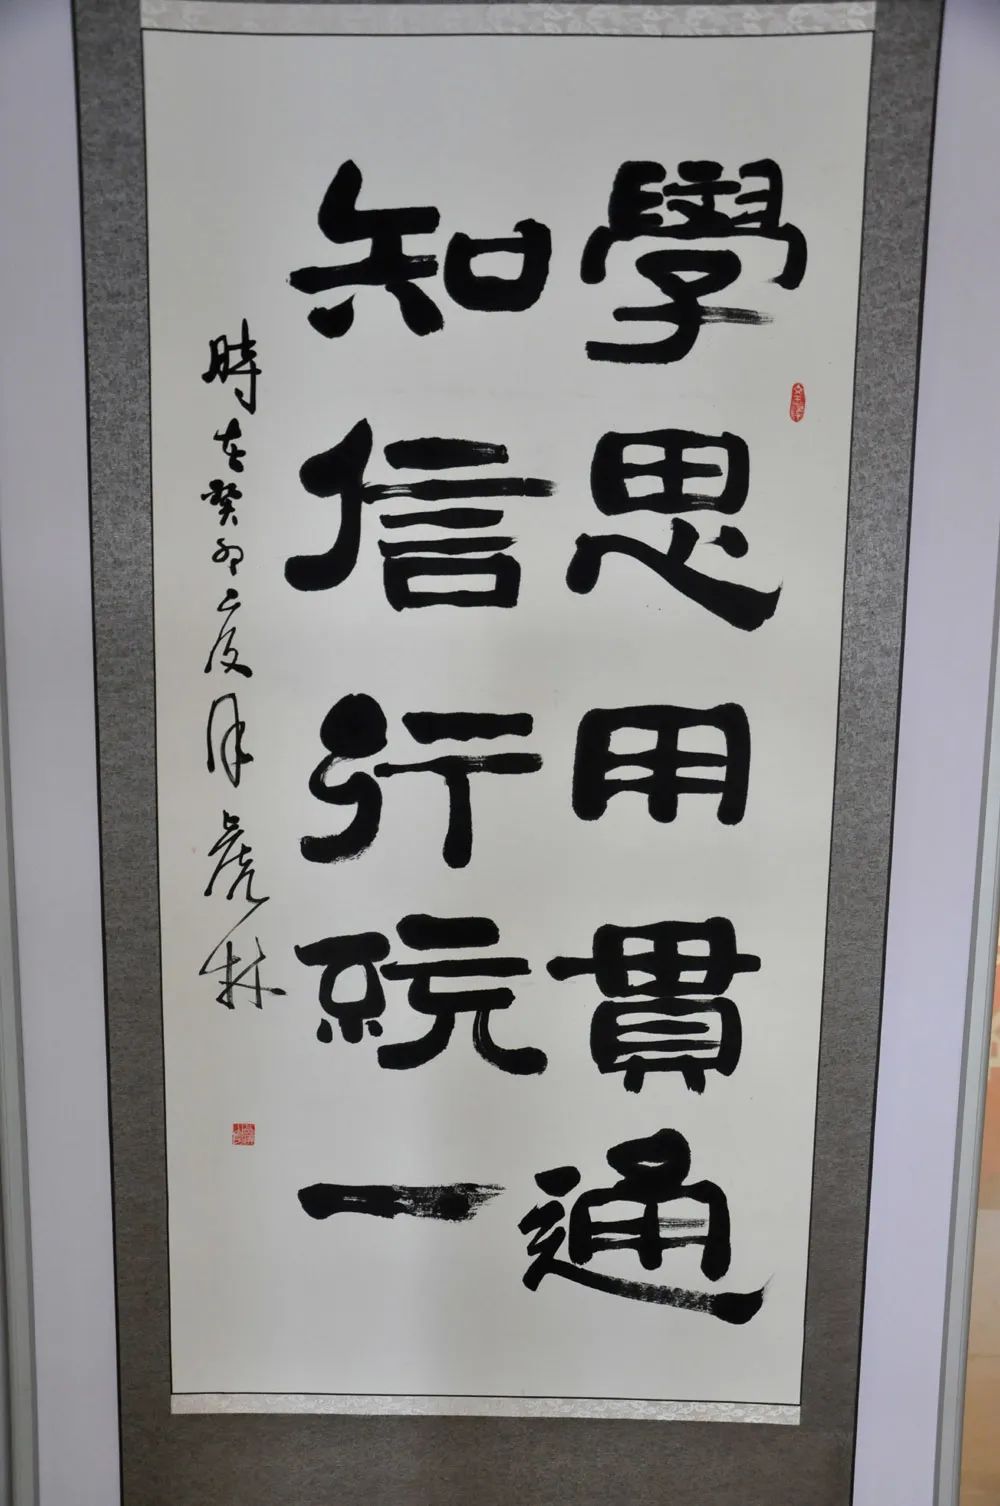 學思用貫通
知信行統一
時在癸卯二月虎林